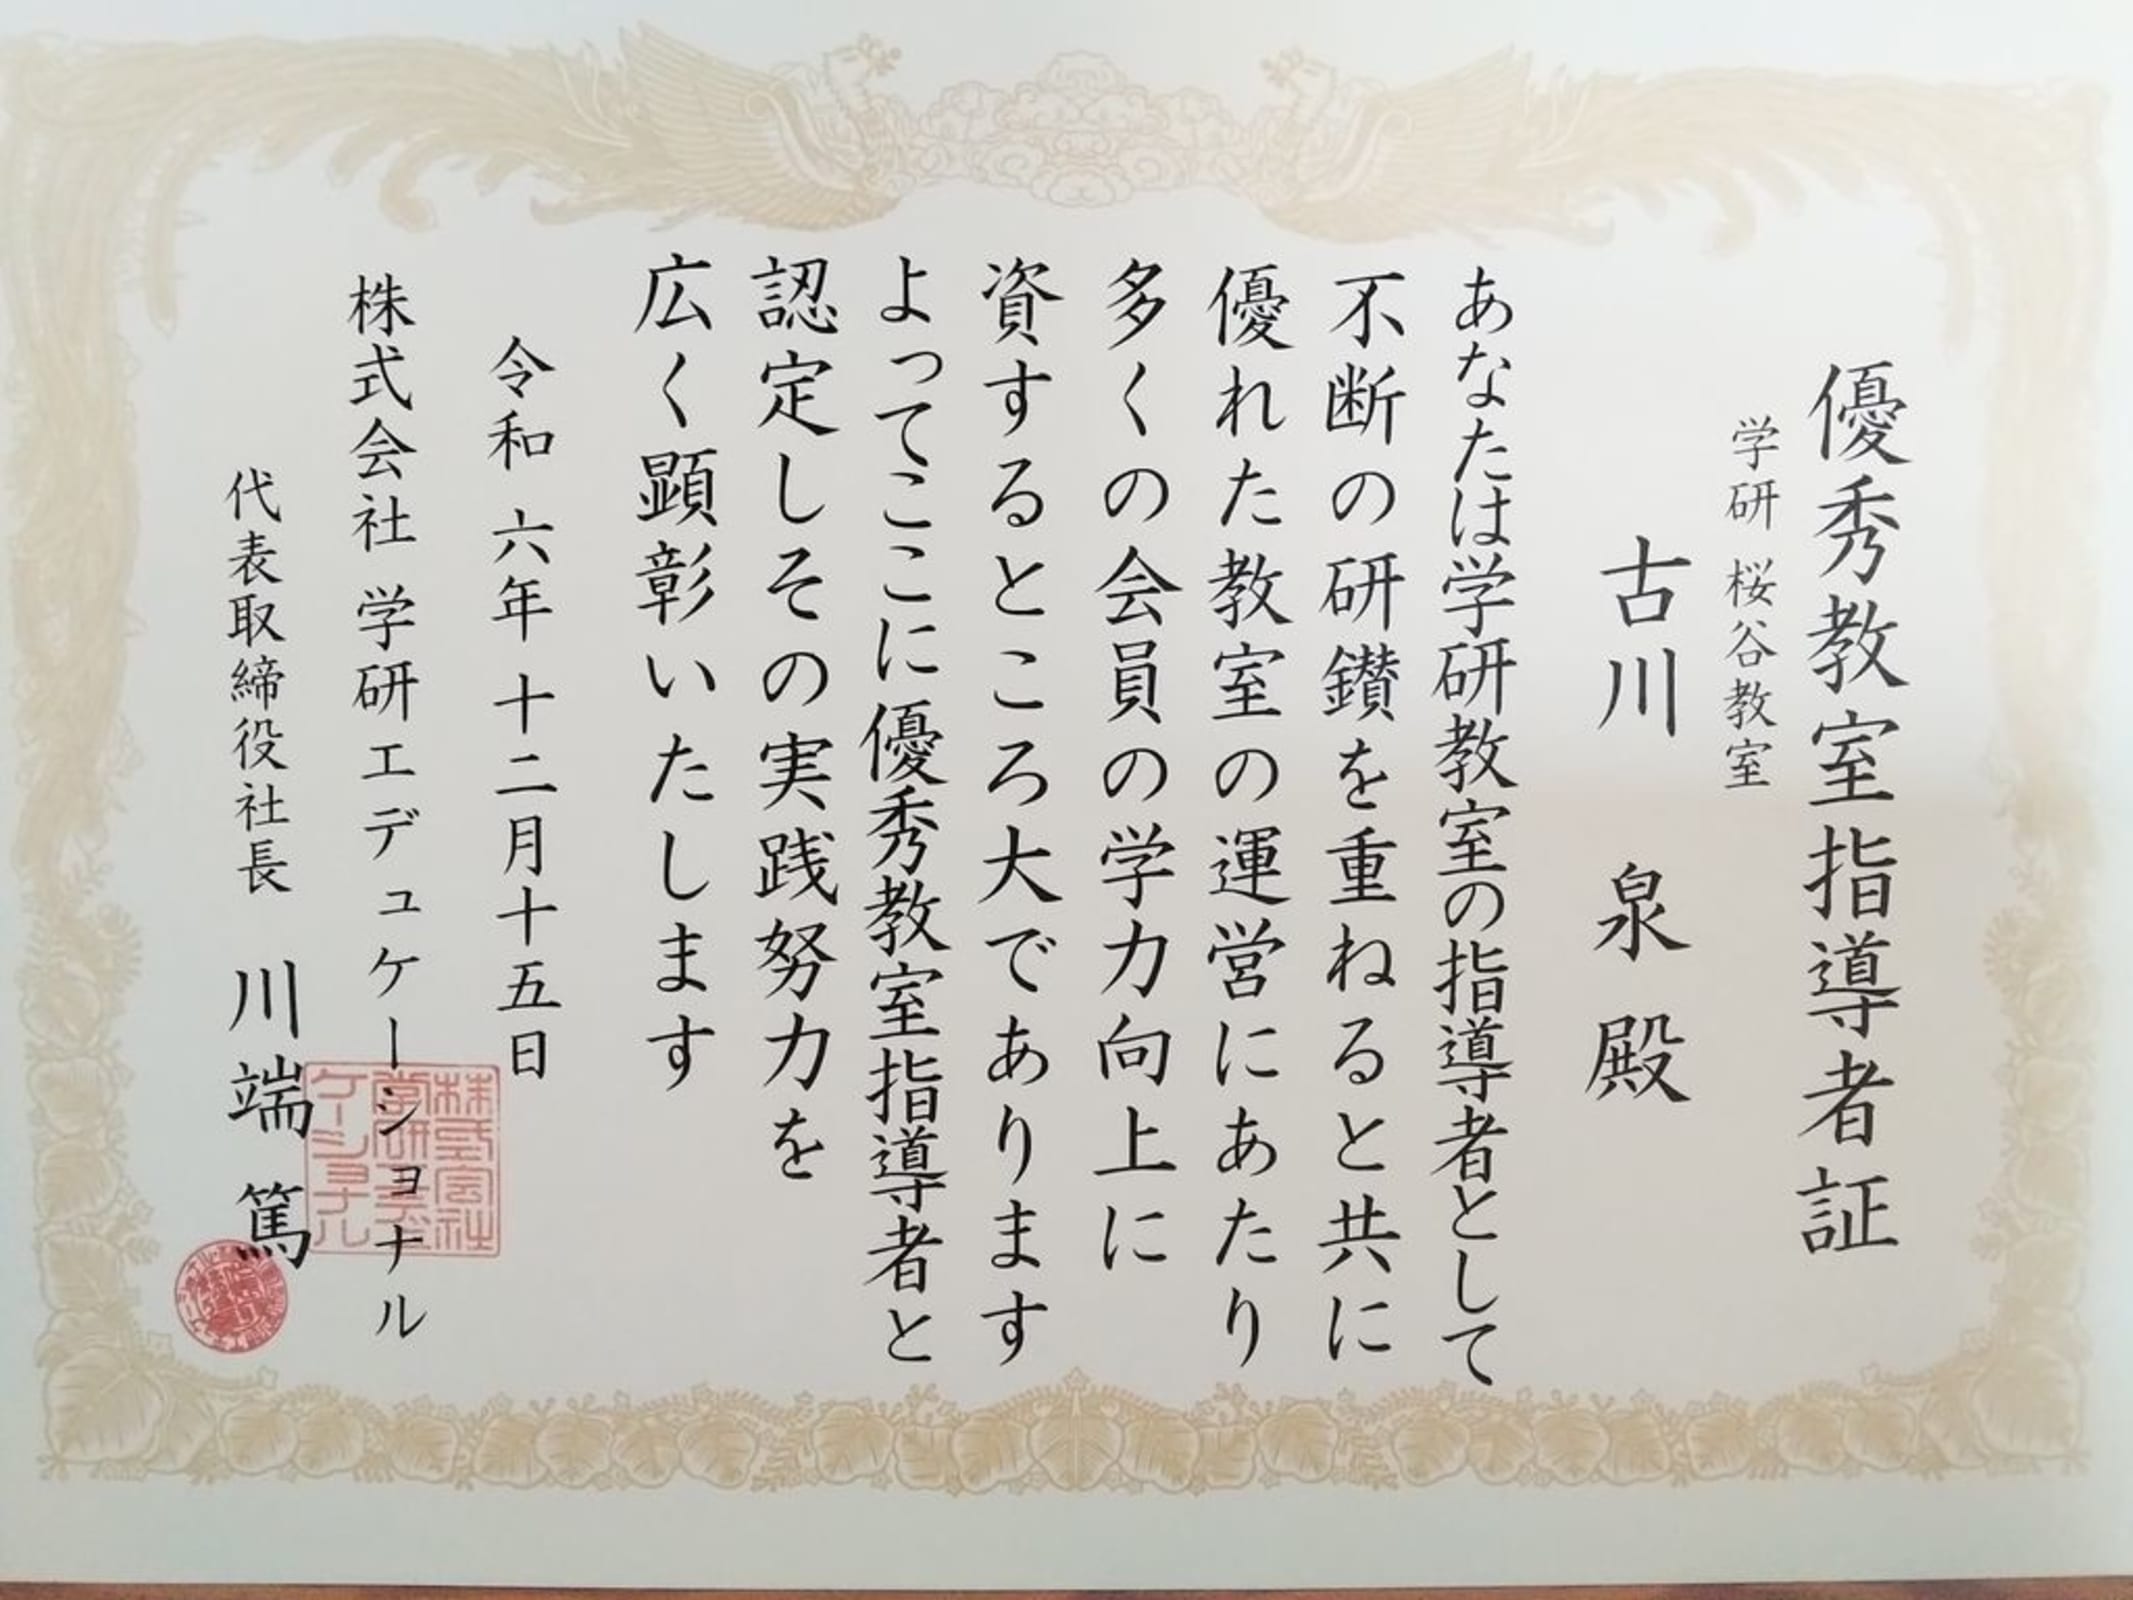 優秀教室指導者証
学研 桜谷教室
古川 泉 殿
あなたは学研教室の指導者として
不断の研鑚を重ねると共に
優れた教室の運営にあたり
多くの会員の学力向上に
資するところ大であります
よってここに優秀教室指導者と
認定しその実践努力を
広く顕彰いたします
令和 六年 十二月十五日
株式会社 学研エデュケーショナル
代表取締役社長 川端 篤
株式会社
学研エデュ
ケーショナル